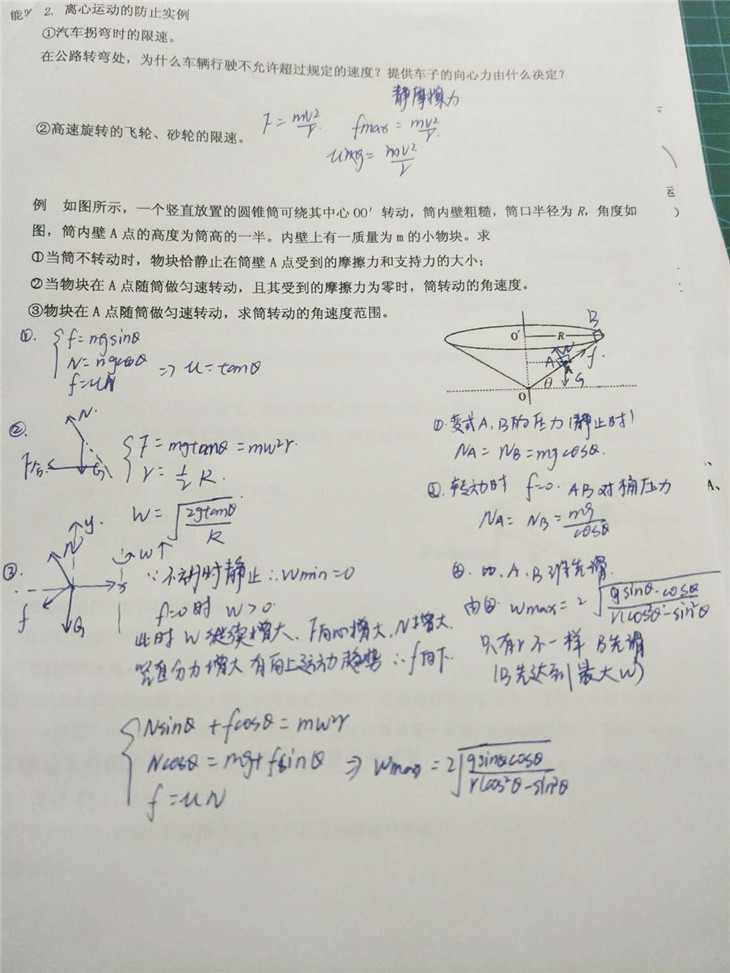 2. 离心运动的防止实例
①汽车拐弯时的限速。
在公路转弯处，为什么车辆行驶不允许超过规定的速度？提供车子的向心力由什么决定？
静摩擦力
②高速旋转的飞轮、砂轮的限速。
F = mv²/r. fmax = mv²/r.
umg = mv²/r
例 如图所示，一个竖直放置的圆锥筒可绕其中心OO′转动，筒内壁粗糙，筒口半径为R，角度如
图，筒内壁A点的高度为筒高的一半。内壁上有一质量为m的小物块。求
①当筒不转动时，物块恰静止在筒壁A点受到的摩擦力和支持力的大小；
②当物块在A点随筒做匀速转动，且其受到的摩擦力为零时，筒转动的角速度。
③物块在A点随筒做匀速转动，求筒转动的角速度范围。
①. f = mgsinθ
N = mgcosθ ⇒ u = tanθ
f = uN
O′ R B
A f
G
O θ
②. N
F = mgtanθ = mw²r.
r = ½ R.
w = √(2gtanθ/R)
①. 变式A、B的压力(静止时)
NA = NB = mgcosθ.
②. 转动时 f=0. AB对桶压力
NA = NB = mg/cosθ
③ y N w↑ x
f G
∵ 不动时静止 ∴ wmin = 0
f=0时 w>0.
此时 w 继续增大、F向心增大、N增大.
竖直分力增大 有向上运动趋势 ∴ f向下.
A、B谁先滑.
wmax = 2√(gsinθ·cosθ/r(cos²θ-sin²θ))
只有r不一样 B先滑
(B先达到最大w)
Nsinθ + fcosθ = mw²r
Ncosθ = mg + fsinθ ⇒ wmax = 2√(gsinθcosθ/r(cos²θ-sin²θ))
f = uN